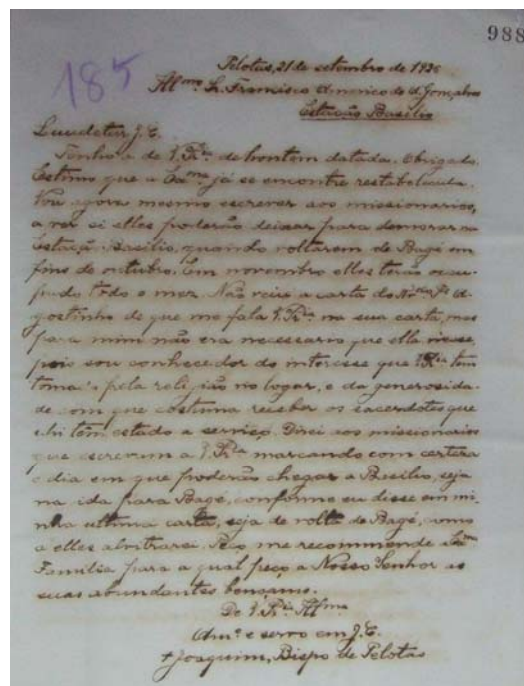 988
185
Pelotas, 21 de setembro de 1926
Illmo Sr. Francisco Americo de A. Gonçalves
Estação Basilio
Laudetur J. C.
Tenho a de V. Rcia de hontem datada. Obrigado.
Estimo que a já se encontre restabelecida.
Vou agora mesmo escrever aos missionarios,
a ver si elles poderão deixar para demorar na
Estação Basilio, quando voltarem de Bagé em
fins de outubro. Em novembro elles terão occu-
pado todo o mez. Não veio a carta do A-
gostinho de que me fala V. na sua carta, mas
para mim não era necessario que ella viesse,
pois sou conhecedor do interesse que V. tem
toma pela religião no logar, e da generosida-
de com que costuma receber os sacerdotes que
ahi têm estado a serviço. Direi aos missionarios
que escrevam a V. marcando com certeza
o dia em que poderão chegar a Basilio, seja
na ida para Bagé, conforme eu disse em mi-
nha ultima carta, seja de volta de Bagé, como
a elles alvitrarei. Peço me recommende á
Familia para a qual peço a Nosso Senhor as
suas abundantes bençams.
De V.
Amo e servo em J. C.
† Joaquim, Bispo de Pelotas